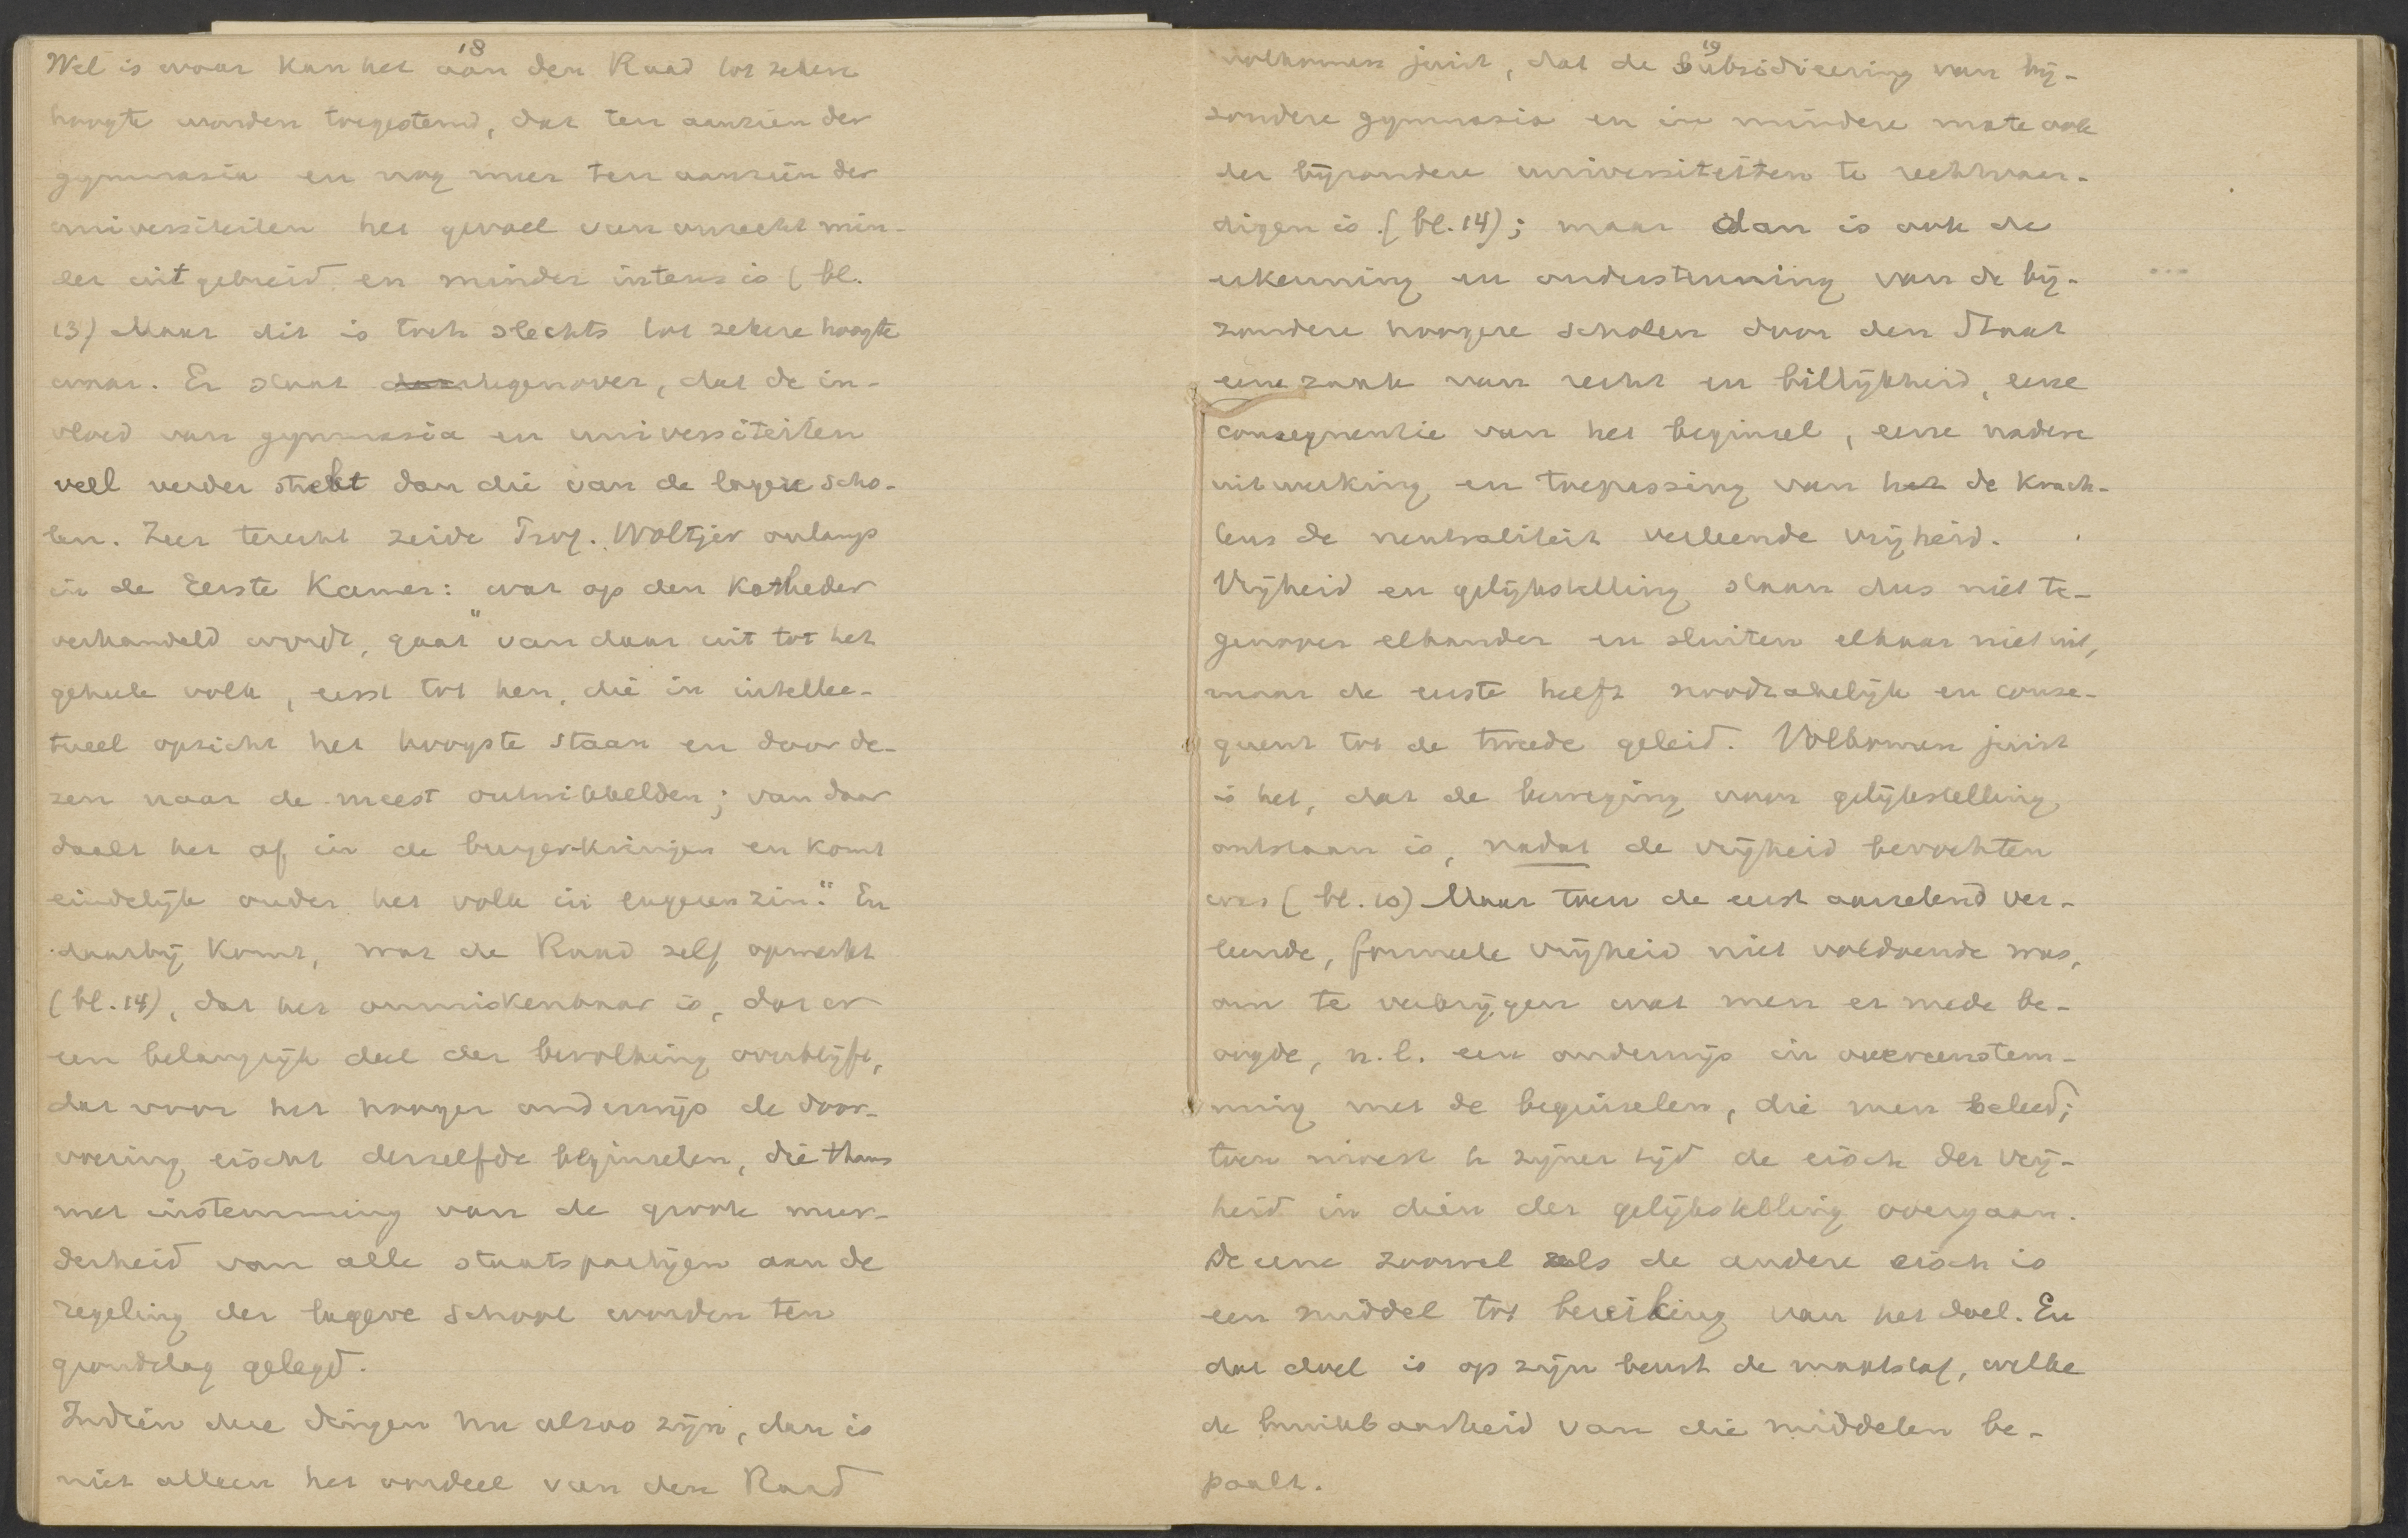 18
Wel is waar kan het aan den Raad tot zekere
hoogte worden toegestemd, dat ten aanzien der
gymnasia en nog meer ten aanzien der
universiteiten het gevoel van onrecht min-
der uitgebreid en minder intens is (bl.
13) Maar dit is toch slechts tot zekere hoogte
waar. Er staat tegenover, dat de in-
vloed van gymnasia en universiteiten
veel verder strekt dan die van de lagere scho-
len. Zeer terecht zeide Prof. Woltjer onlangs
in de Eerste Kamer: "wat op den Katheder
verhandeld wordt, gaat van daar uit tot het
geheele volk, eerst tot hen, die in intellec-
tueel opzicht het hoogste staan en door de-
zen naar de meest ontwikkelden; van daar
daalt het af in de burgerkringen en komt
eindelijk onder het volk in engeren zin." En
daarbij komt, wat de Raad zelf opmerkt
(bl. 14), dat het onmiskenbaar is, dat er
een belangrijk deel der bevolking overblijft,
dat voor het hooger onderwijs de door-
voering eischt derzelfde beginselen, die thans
met instemming van de groote meer-
derheid van alle staatspartijen aan de
regeling der lagere school worden ten
grondslag gelegd.
Indien deze dingen nu alzoo zijn, dan is
niet alleen het oordeel van den Raad
19
volkomen juist, dat de subsidieering van bij-
zondere gymnasia en in mindere mate ook
der bijzondere universiteiten te rechtvaar-
digen is (bl. 14); maar dan is ook de
erkenning en ondersteuning van de bij-
zondere hoogere scholen door den Staat
eene zaak van recht en billijkheid, eene
consequentie van het beginsel, eene nadere
uitwerking en toepassing van het de krach-
tens de neutraliteit verleende vrijheid.
Vrijheid en gelijkstelling staan dus niet te-
genover elkander en sluiten elkaar niet uit,
maar de eerste heeft noodzakelijk en conse-
quent tot de tweede geleid. Volkomen juist
is het, dat de beweging voor gelijkstelling
ontstaan is, nadat de vrijheid bevochten
was (bl. 10) Maar toen de eerst aarzelend ver-
leende, formeele vrijheid niet voldoende was,
om te verkrijgen wat men er mede be-
oogde, n.l. een onderwijs in overeenstem-
ming met de beginselen, die men beleed;
toen moest te zijner tijd de eisch der vrij-
heid in dien der gelijkstelling overgaan.
De eene zoowel als de andere eisch is
een middel tot bereiking van het doel. En
dat doel is op zijn beurt de maatstaf, welke
de bruikbaarheid van die middelen be-
paalt.